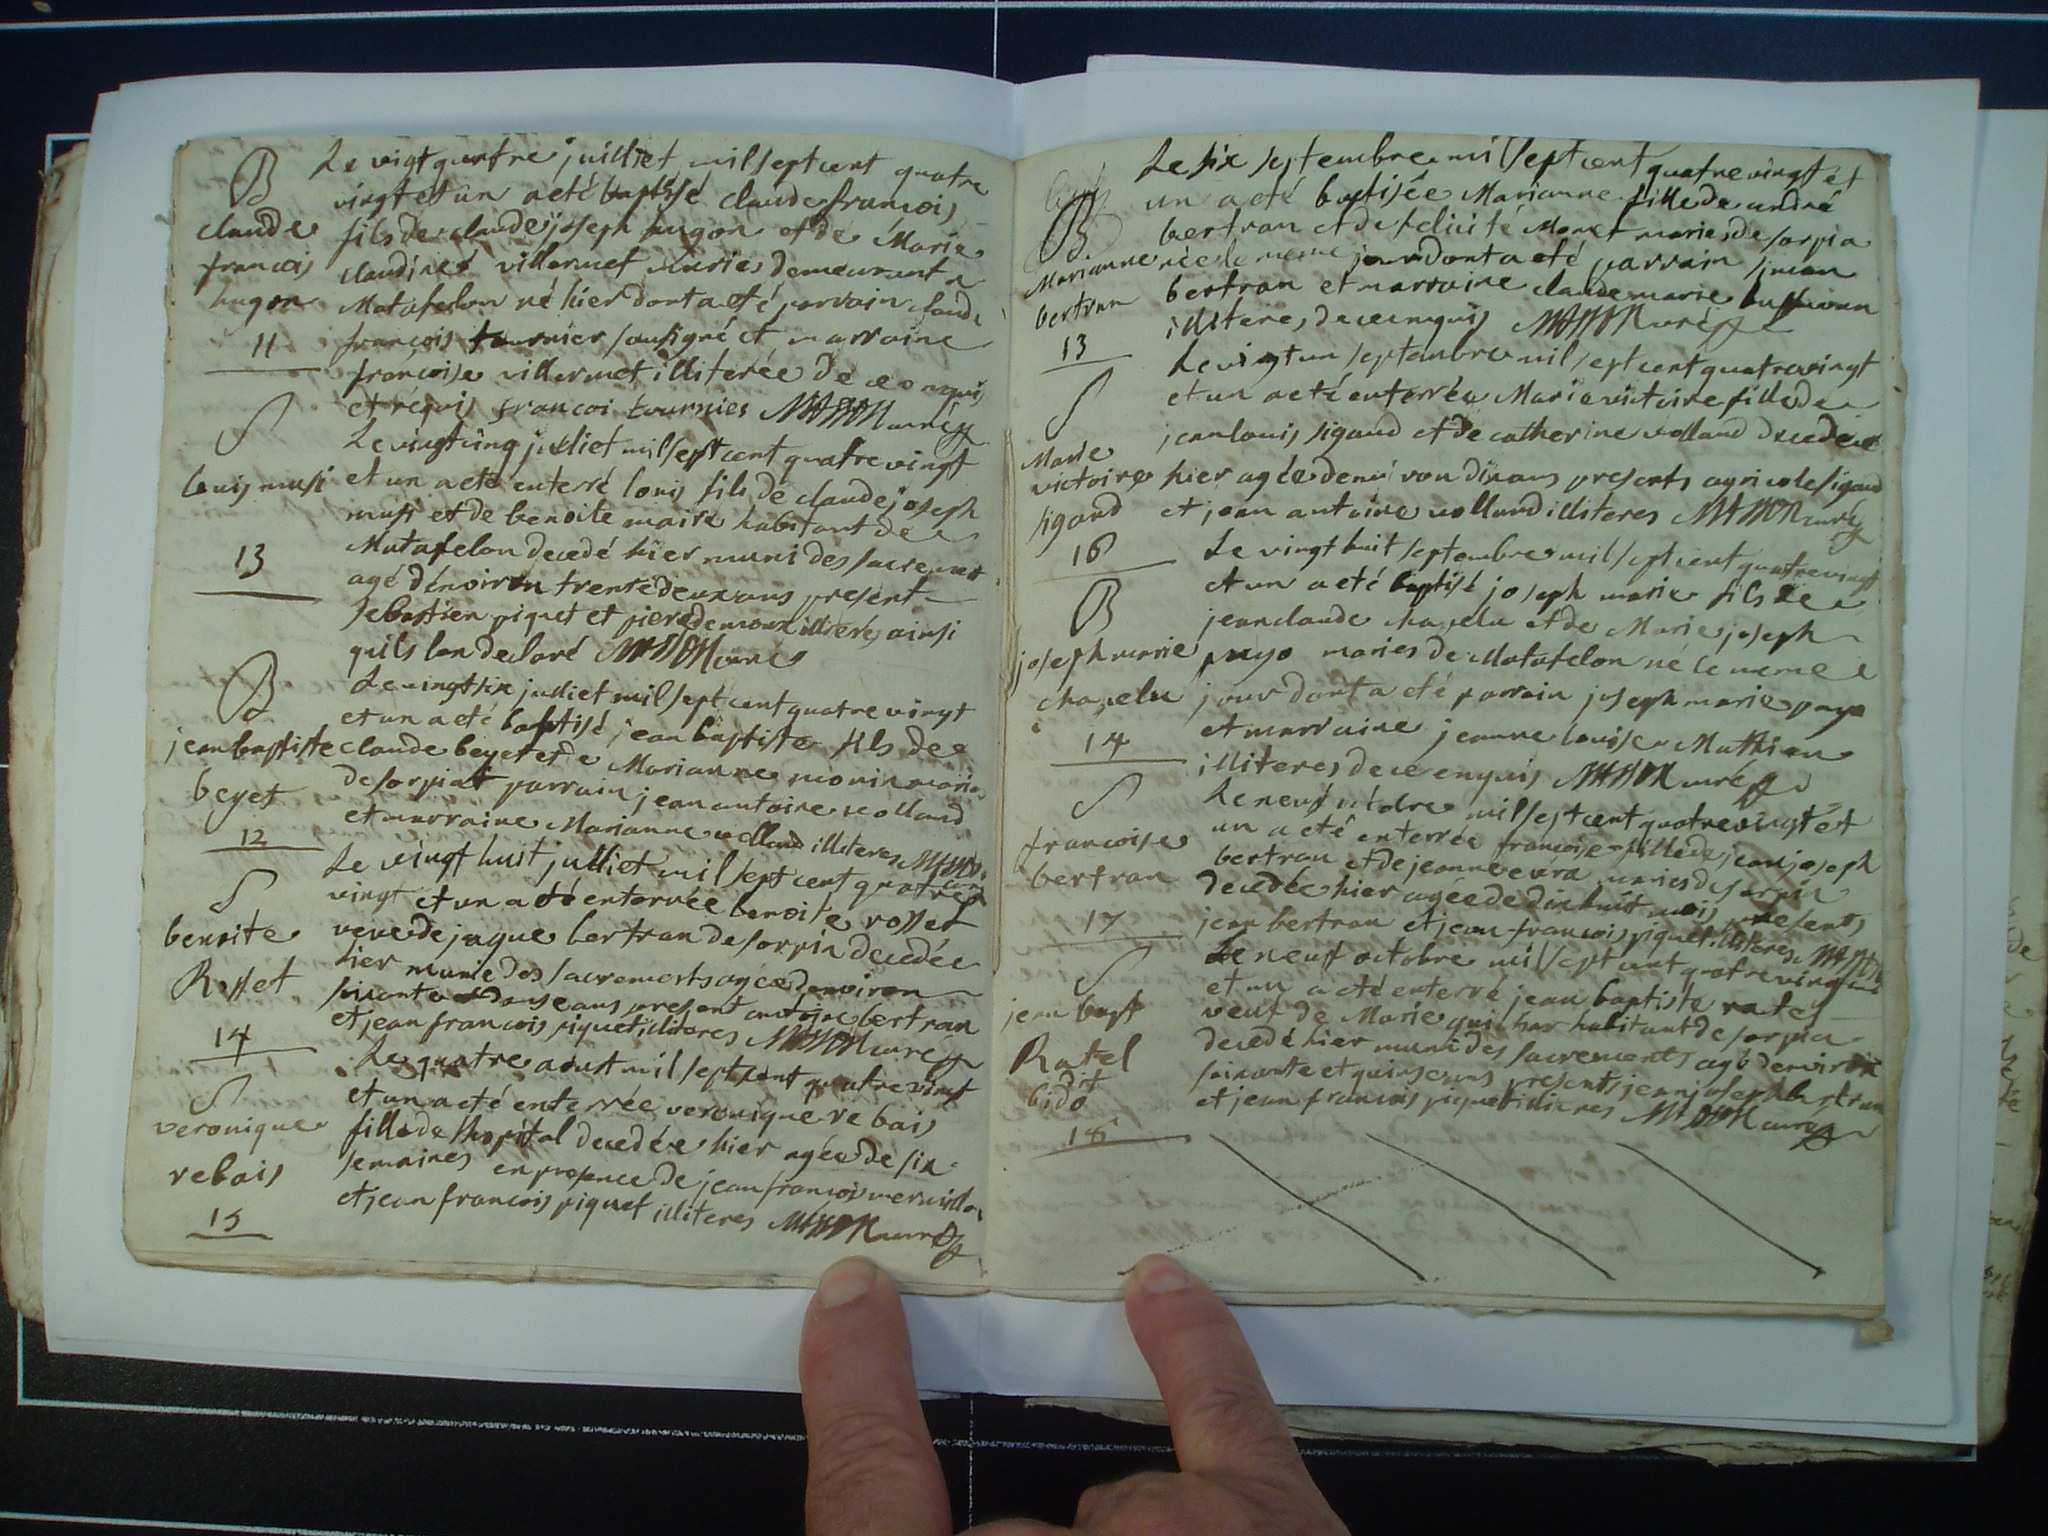 B
claude
francois
hugon
11
Le vigt quatre juilliet mil sept cent quatre
vingt et un a eté baptisé claude francois
fils de claude joseph hugon et de Marie
claudine villermet maries demeurant a
Matafelon né hier dont a eté parrain claude
francois tournier sousigné et marraine
françoise villermet illiterée de ce enquis
et requis francoi tournier MASSON curé
S
Louis musi
13
Le vingt cinq julliet mil sept cent quatre vingt
et un a eté enterré louis fils de claude joseph
musi et de benoite maire habitant de
Matafelon decedé hier muni des sacremens
agé dénviron trente deux ans present
sebastien piquet et piere demoux illiterés ainsi
quils lon declaré MASSON curé
B
jean baptiste
beyet
12
Le vingt six julliet mil sept cent quatre vingt
et un a eté baptisé jean baptiste fils de
claude beyet et de Marianne monin maries
de sorpiat parrain jean antoine volland
et marraine Marianne volland illiteres MASSON
curé
S
benoite
Rosset
14
Le vingt huit julliet mil sept cent quatre
vingt et un a eté enterrée benoite rosset
veve de jaque bertran de sorpia decedée
hier munie des sacrements agée denviron
soixante et douse ans present antoine bertran
et jean francois piquet iliteres MASSON curé
S
veronique
rebais
15
Le quatre aoust mil sept cent quatre vingt
et un a eté enterrée veronique rebais
fille de lhopital decedée hier agée de six
semaines en presence de jean françois
et jean francois piquet illiteres MASSON curé
B
Marianne
bertran
13
Le six septembre mil sept cent quatre vingt et
un a eté baptisée Marianne fille de andré
bertran et de felicité Monet maries de sorpia
née le meme jour dont a eté parrain jean
bertran et marraine claude marie
illiteres de ce enquis MASSON curé
S
Marie
victoire
sigaud
16
Le vingt un septembre mil sept cent quatre vingt
et un a eté enterrée Marie victoire fille de
jean louis sigaud et de catherine volland decedée
hier agée denviron dix ans presents agricole sigaud
et jean antoine volland illiteres MASSON curé
B
joseph marie
chapelu
14
Le vingt huit septembre mil sept cent quatre vingt
et un a eté baptisé joseph marie fils de
jean claude chapelu et de Marie joseph
payo maries de Matafelon né le meme
jour dont a eté parrain joseph marie payo
et marraine jeanne louise Mathieu
illiteres de ce enquis MASSON curé
S
francoise
bertran
17
Le neuf octobre mil sept cent quatre vingt et
un a eté enterrée françoise fille de jean joseph
bertran et de jeanne evra maries de sorpia
decedée hier agée de dix huit mois presents
jean bertran et jean francois piquet iliteres MASSON
S
jean bapt
Ratel
dit
bido
18
Le neuf octobre mil sept cent quatre vingt
et un a eté enterré jean baptiste ratel
veuf de Marie habitant de sorpia
decedé hier muni des sacrements agé denviron
soixante et quinse ans presents jean joseph bertran
et jean francois piquet iliteres MASSON curé